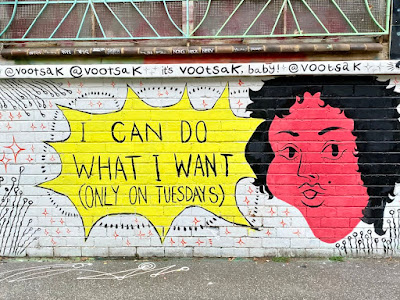 @vootsak @vootsak it's vootsak, baby! @vootsak
I CAN DO
WHAT I WANT
(ONLY ON TUESDAYS)